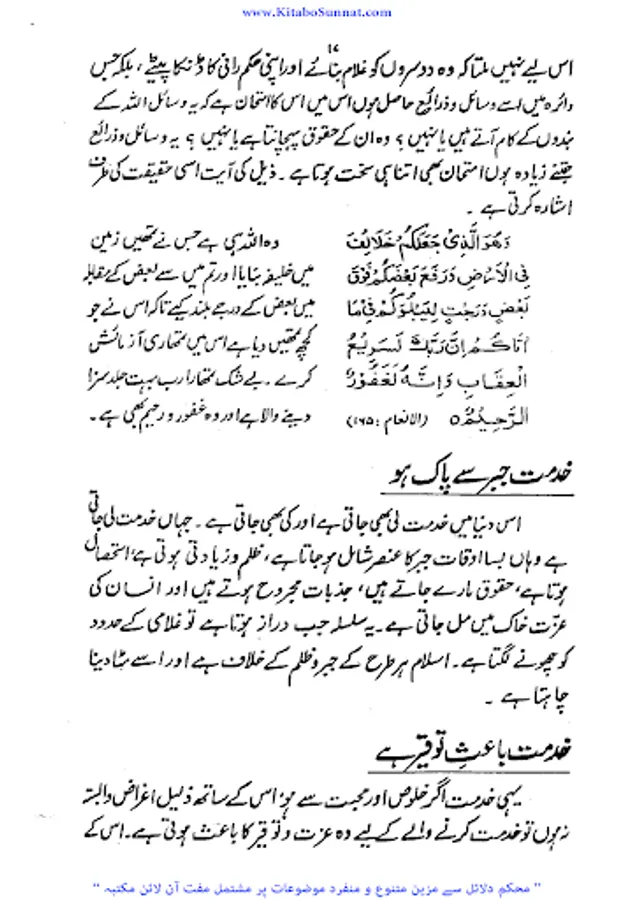 www.KitaboSunnat.com
۱۷
اس لیے نہیں ملتا کہ وہ دوسروں کو غلام بنائے اور اپنی حکم رانی کا ڈنکا پیٹے، بلکہ جس
دائرہ میں اسے وسائل و ذرائع حاصل ہوں اس میں اس کا امتحان ہے کہ یہ وسائل اللہ کے
بندوں کے کام آتے ہیں یا نہیں؟ وہ ان کے حقوق پہچانتا ہے یا نہیں؟ یہ وسائل و ذرائع
جتنے زیادہ ہوں امتحان بھی اتنا ہی سخت ہوتا ہے۔ ذیل کی آیت اسی حقیقت کی طرف
اشارہ کرتی ہے۔
وَهُوَ الَّذِيْ جَعَلَكُمْ خَلَائِفَ
فِي الْاَرْضِ وَرَفَعَ بَعْضَكُمْ فَوْقَ
بَعْضٍ دَرَجٰتٍ لِّيَبْلُوَكُمْ فِيْ مَا
اٰتَاكُمْ اِنَّ رَبَّكَ لَسَرِيْعُ
الْعِقَابِ وَاِنَّهٗ لَغَفُوْرٌ
الرَّحِيْمٌ ٥ (الانعام: ۱۶۵)
وہ اللہ ہی ہے جس نے تمھیں زمین
میں خلیفہ بنایا اور تم میں سے بعض کے مقابلہ
میں بعض کے درجے بلند کیے تاکہ اس نے جو
کچھ تمھیں دیا ہے اس میں تمھاری آزمائش
کرے۔ بے شک تمھارا رب بہت جلد سزا
دینے والا ہے اور وہ غفور و رحیم بھی ہے۔
خدمت جبر سے پاک ہو
اس دنیا میں خدمت لی بھی جاتی ہے اور کی بھی جاتی ہے۔ جہاں خدمت لی جاتی
ہے وہاں بسا اوقات جبر کا عنصر شامل ہو جاتا ہے، ظلم و زیادتی ہوتی ہے، استحصال
ہوتا ہے، حقوق مارے جاتے ہیں، جذبات مجروح ہوتے ہیں اور انسان کی
عزت خاک میں مل جاتی ہے۔ یہ سلسلہ جب دراز ہوتا ہے تو غلامی کے حدود
کو چھونے لگتا ہے۔ اسلام ہر طرح کے جبر و ظلم کے خلاف ہے اور اسے مٹا دینا
چاہتا ہے۔
خدمت باعثِ توقیر ہے
یہی خدمت اگر خلوص اور محبت سے ہو، اس کے ساتھ ذلیل اغراض وابستہ
نہ ہوں تو خدمت کرنے والے کے لیے وہ عزت و توقیر کا باعث ہوتی ہے۔ اس کے
" محکم دلائل سے مزین متنوع و منفرد موضوعات پر مشتمل مفت آن لائن مکتبہ "